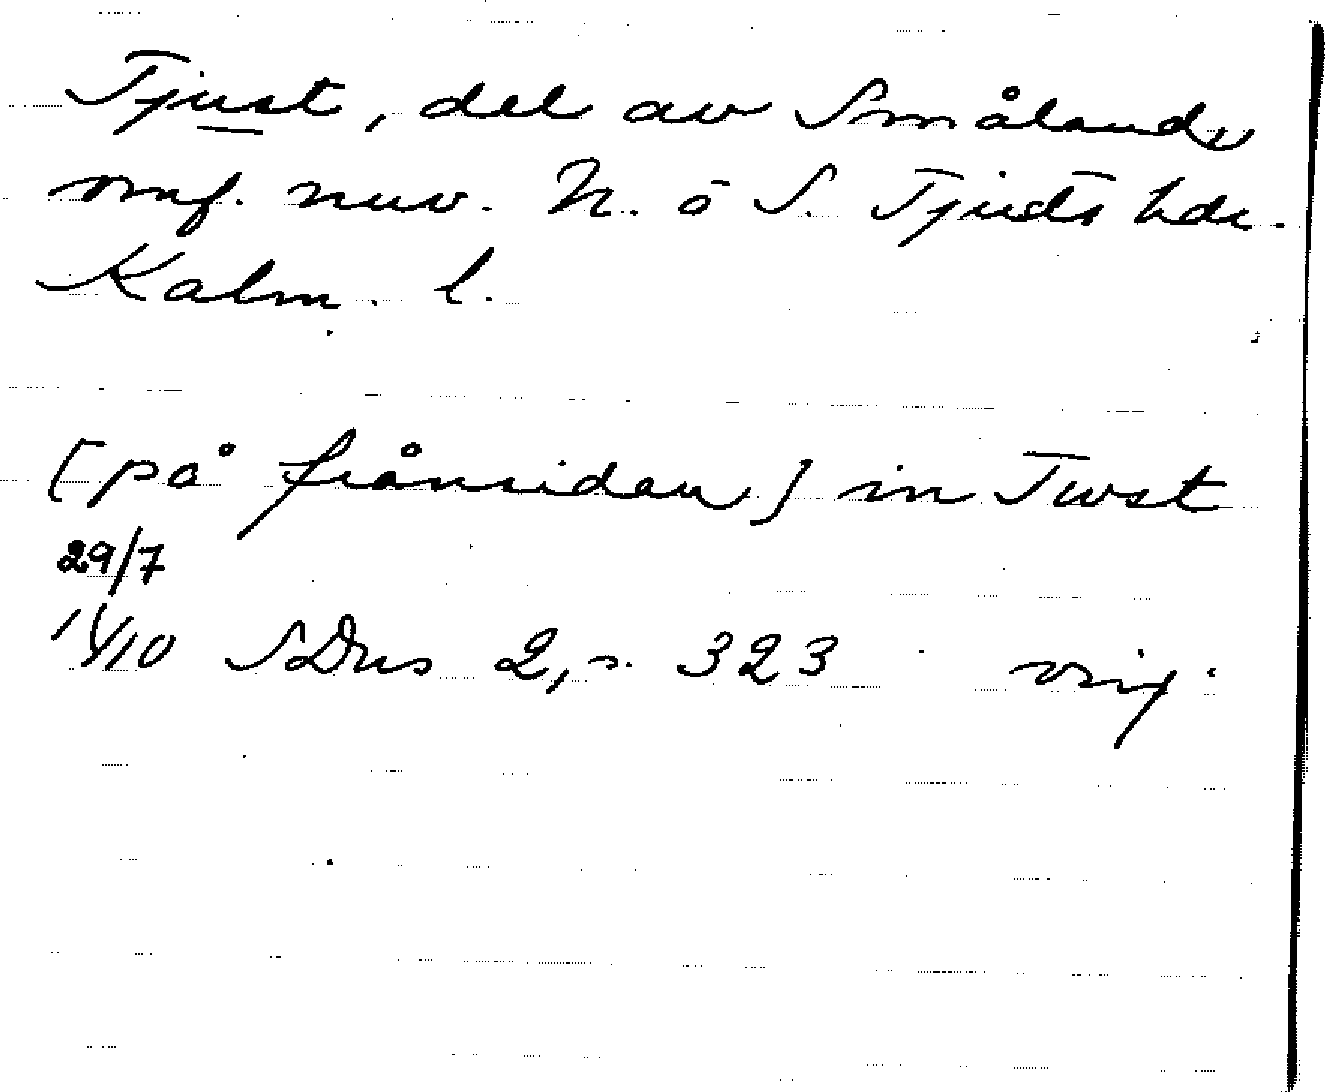 Tjust, del av Småland,
omf. nuv. N. o S. Tjusts hdr.
Kalm. l.
[på frånsidan] in Twst
29/7
SDns 2, s. 323 orig.